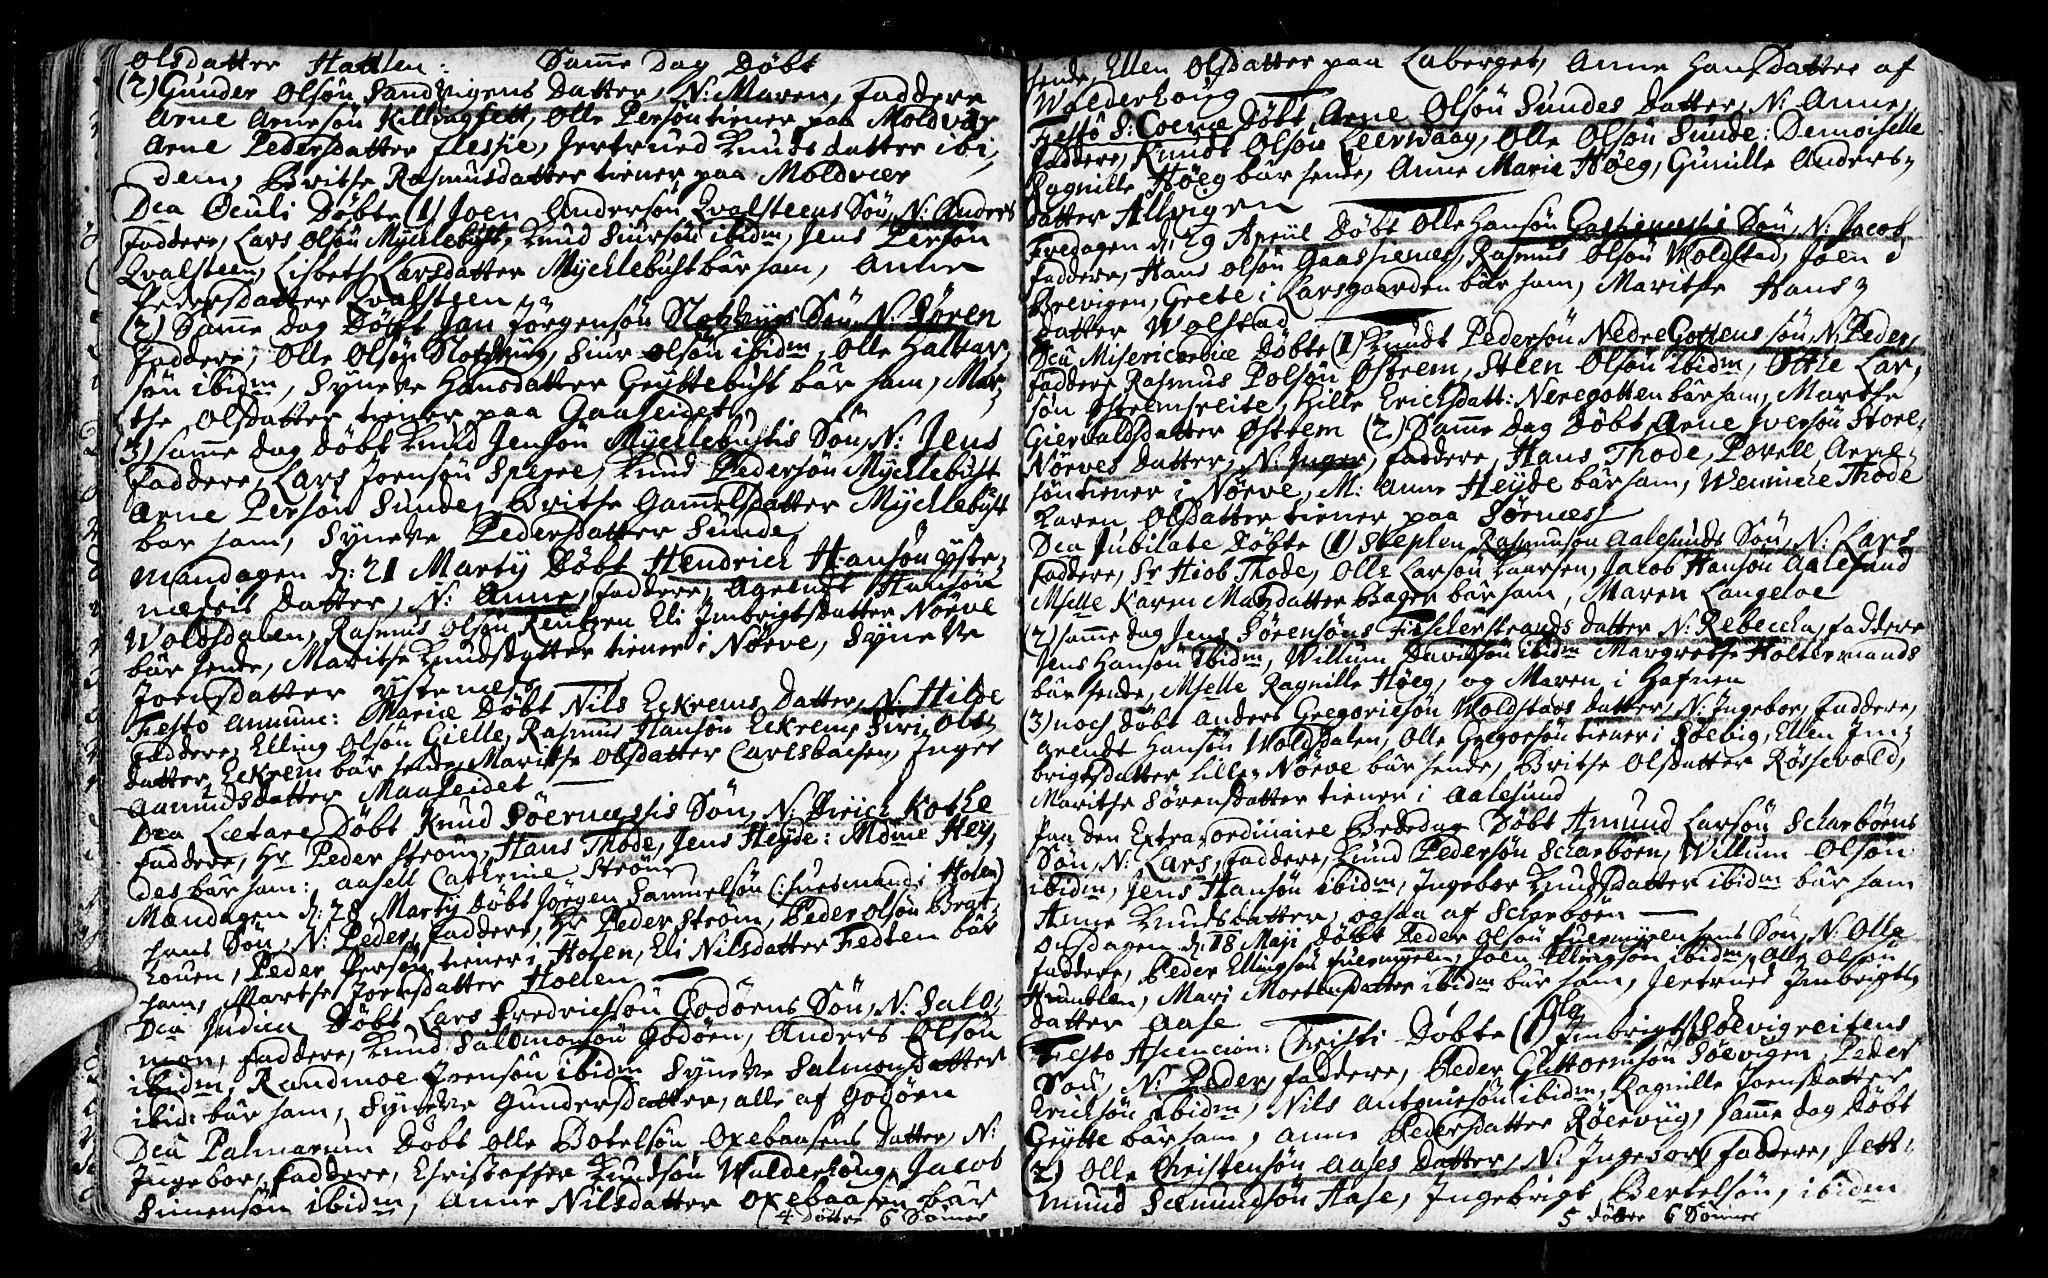 Olsdatter Hatlen: Samme Dag Døbt
(2) Gunder Olsøn Sandvigens Datter, N: Maren, faddere
Arne Arnesøn Killingsett, Olle Persøn tiener paa Moldvær
Arne Pedersdatter flessie, Jertrued Knudsdatter ibi,
dem, Brithe Rasmusdatter tiener paa Moldvær
Dca Oculi Døbte (1) Joen Andersøn Qvalsteens Søn, N: Anders
faddere, Lars Olsøn Mycklebust, Knud Siursøn ibidm, Jens Persøn
Qvalsteen, Lisbeth Larsdatter Mycklebust bar ham, Anne
Pedersdatter Qvalsteen
(2) Samme dag Døbt Jan Jørgensøn Slotviigs Søn, N: Søren
faddere, Olle Olsøn Slotviig, Siur Olsøn ibidm, Olle Halvar,
søn ibidm, Synneve Hansdatter Gryttebust bar ham, Mar,
the Olsdatter tiener paa Gaaseidet
(3) samme dag døbt Knud Jensøn Mycklebustis Søn, N: Jens
faddere, Lars Joensøn Sperre, Knud Pedersøn Mycklebust
Arne Persøn Sunde, Brithe Gammelsdatter Mycklebust
bar ham, Synneve Pedersdatter Sunde
Mandagen d: 21 Martij Døbt Hendrich Hansøn yste,
næsis Datter, N: Anne, faddere, Agrendt Hansøn
Woldsdalen, Rasmus Olsøn Reutzen Eli Imbrigtsdatter Nørve
bar hende, Marithe Knudsdatter tiener i Nørve, Synneve
Joensdatter ystenæs
Festo Annunc: Mariæ Døbt Nils Eckrems Datter, N: Hilde
faddere, Elling Olsøn Gielle, Rasmus Hansøn Eckrem, Siri Ols,
datter Eckrem bar hende, Marithe Olsdatter Carlsbachen, Inger
Aamundsdatter Maaseidet
Dca Lætare Døbt Knud Søernæssis Søn, N: Dirich Kothe
faddere, Hr Peder Strøm, Hans Thode, Jens Heyde: Mdme Hey,
des bar ham: Aasell Cathrine Strøm
Mandagen d: 28 Martij Døbt Jørgen Sammelsøn (: huusmand i Holen)
hans Søn, N: Peder, faddere, Hr Peder Strøm, Peder Olsøn Bret,
houen, Peder Persøn tiener i Holen, Eli Nilsdatter Fedten bar
ham, Marthe Joensdatter Hollen
Dca Judica Døbt Lars Fredrichsøn Godøens Søn, N: Salo,
mon, faddere, Knud Salomonsøn Godøen, Anders Olsøn
ibidm, Randmoe Joensøn ibidm Synneve Salmonsdatter
ibid: bar ham, Synneve Gundersdatter, alle af Godøen
Dca Palmarum Døbt Olle Botelsøn Oxebaasens Datter, N:
Ingebor, faddere, Christoffer Knudsøn Walderhoug, Jacob
Simensøn ibidm, Anne Nilsdatter Oxebaasen bar
4 Døttre 6 Sønner
hende, Ellen Olsdatter paa Laberget, Anne Hansdatter af
Walderhoug
Festo S: Coenæ Døbt Arne Olsøn Sundes Datter, N: Anne,
faddere, Knudt Olsøn Leervaag, Olle Olsøn Sunde: Demoiselle
Ragnille Høeg bar hende, Anne Marie Høeg, Gunille Anders,
datter Allvigen
Fredagen d: 29 Apriil Døbt Olle Hansøn Gassienessis Søn, N: Jacob
faddere, Hans Olsøn Gaassienes, Rasmus Olsøn Woldstad, Joen i
Brevigen, Grete i Larsgaarden bar ham, Marithe Hans,
datter Wolstad
Dca Misericordiæ Døbte (1) Knudt Pedersøn Nedre Gottens søn, N: Peder,
faddere Rasmus Polsøn Østrem, Steen Olsøn ibidm, Ottie Lar,
søn Østremsreite, Hille Ericksdatt: Neregotten bar ham, Marthe
Gierwaldsdatter Østrem (2) Samme Dag Døbt Arne Iversøn Store,
Nørves Datter, N: Inger, faddere, Hans Thode, Povell Arne,
søn tiener i Nørve, M: Anne Heyde bar ham, Wennicke Thode
Karen Olsdatter tiener paa Sørnæs
Dca Jubilate Døbte (1) Stephen Rasmusøn Aalesunds Søn, N: Lars
faddere, Sr Hiob Thode, Olle Larsøn Kaarsen, Jacob Hansøn Aalesund
Mselle Karen Matzdatter Bager bar ham, Maren Langeloe
(2) samme dag Jens Sørensøns Fischerstrands datter N: Rebeccha, faddere
Jens Hansøn ibidm, Willum Davidsøn ibidm Margrethe Holtermands
bar hende, Mselle Ragnille Høeg, og Maren i Hafnen
(3) noch døbt Anders Gregoriesøn Woldstads datter, N: Ingebor, faddere,
Arendt Hansøn Woldsdalen, Olle Gregorsøn tiener i Søevig, Ellen Im,
brigtsdatter Lille Nørve bar hende, Brithe Olsdatter Røssevold,
Marithe Sørensdatter tiener i Aalesund
Paa den Extra ordinaire Bededag Døbt Amund Larsøn Scharbøens
Søn, N: Lars, faddere, Knud Pedersøn Scharbøen, Willum Olsøn
ibidm, Jens Hansøn ibidm, Ingebor Knudsdatter ibidm bar ham
Anne Knudsdatter, ogsaa af Scharbøen
Onsdagen d: 18 Maji Døbt Peder Olsøn Furmyren hans Søn, N: Olle
faddere, Peder Ellingsøn Furmyren, Joen Ellingsøn ibidm, Olle Olsøn
Humblen, Mari Mortensdatter ibidm bar ham, Jertrued Imbrigts,
datter Aase
Festo Ascencion: Christi Døbte (1) Ola Imbrigts Søevigreitens
Søn, N: Peder, faddere, Peder Guttormsøn Søevigen, Peder
Ericksøn ibidm, Nils Antoniesøn ibidm, Ragnille Joensdatter
Grytte bar ham, Anne Pedersdatter Røervug, samme dag Døbt
(2) Olle Christensøn Aases Datter, N: Ingebor, faddere, Jett,
mund Sæmundsøn Aase, Ingebrigt Bertelsøn, ibidm
5 døttre 6 Sønner